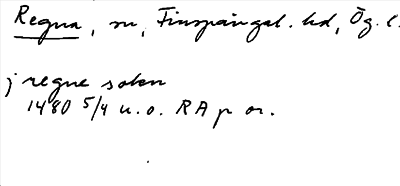 Regna, sn, Finspångal. hd, Ög. l.
j regne sokn
1480 5/4 u. o. RA p or.